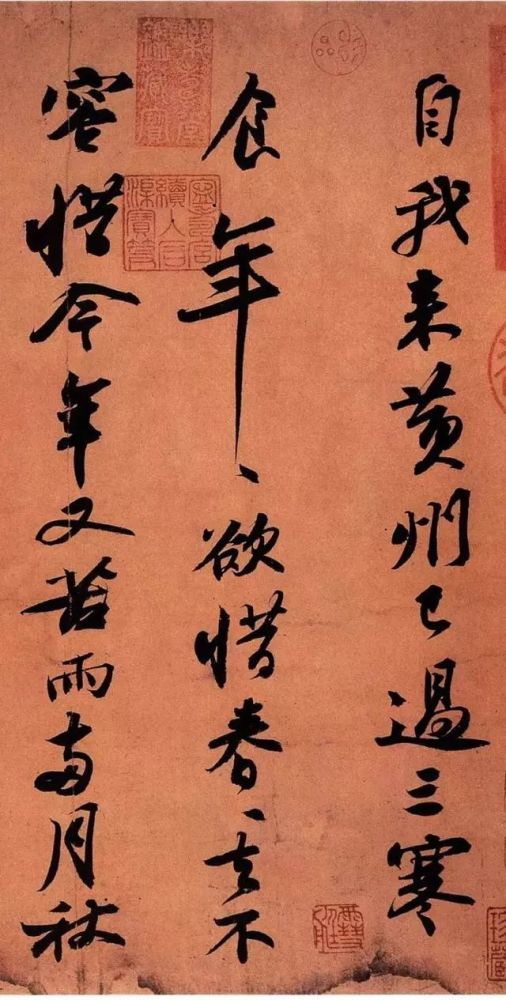 自我来黄州已過三寒
食年、欲惜春、去不
容惜今年又苦雨兩月秋